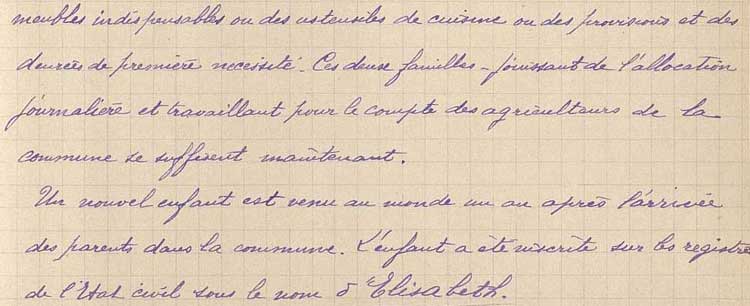 meubles indispensables ou des ustensiles de cuisine ou des provisions et des
denrées de première nécessité. Ces deux familles - jouissant de l'allocation
journalière et travaillant pour le compte des agriculteurs de la
commune se suffisent maintenant.
Un nouvel enfant est venu au monde un an après l'arrivée
des parents dans la commune. L'enfant a été inscrite sur les registres
de l'Etat civil sous le nom d'Elisabeth.